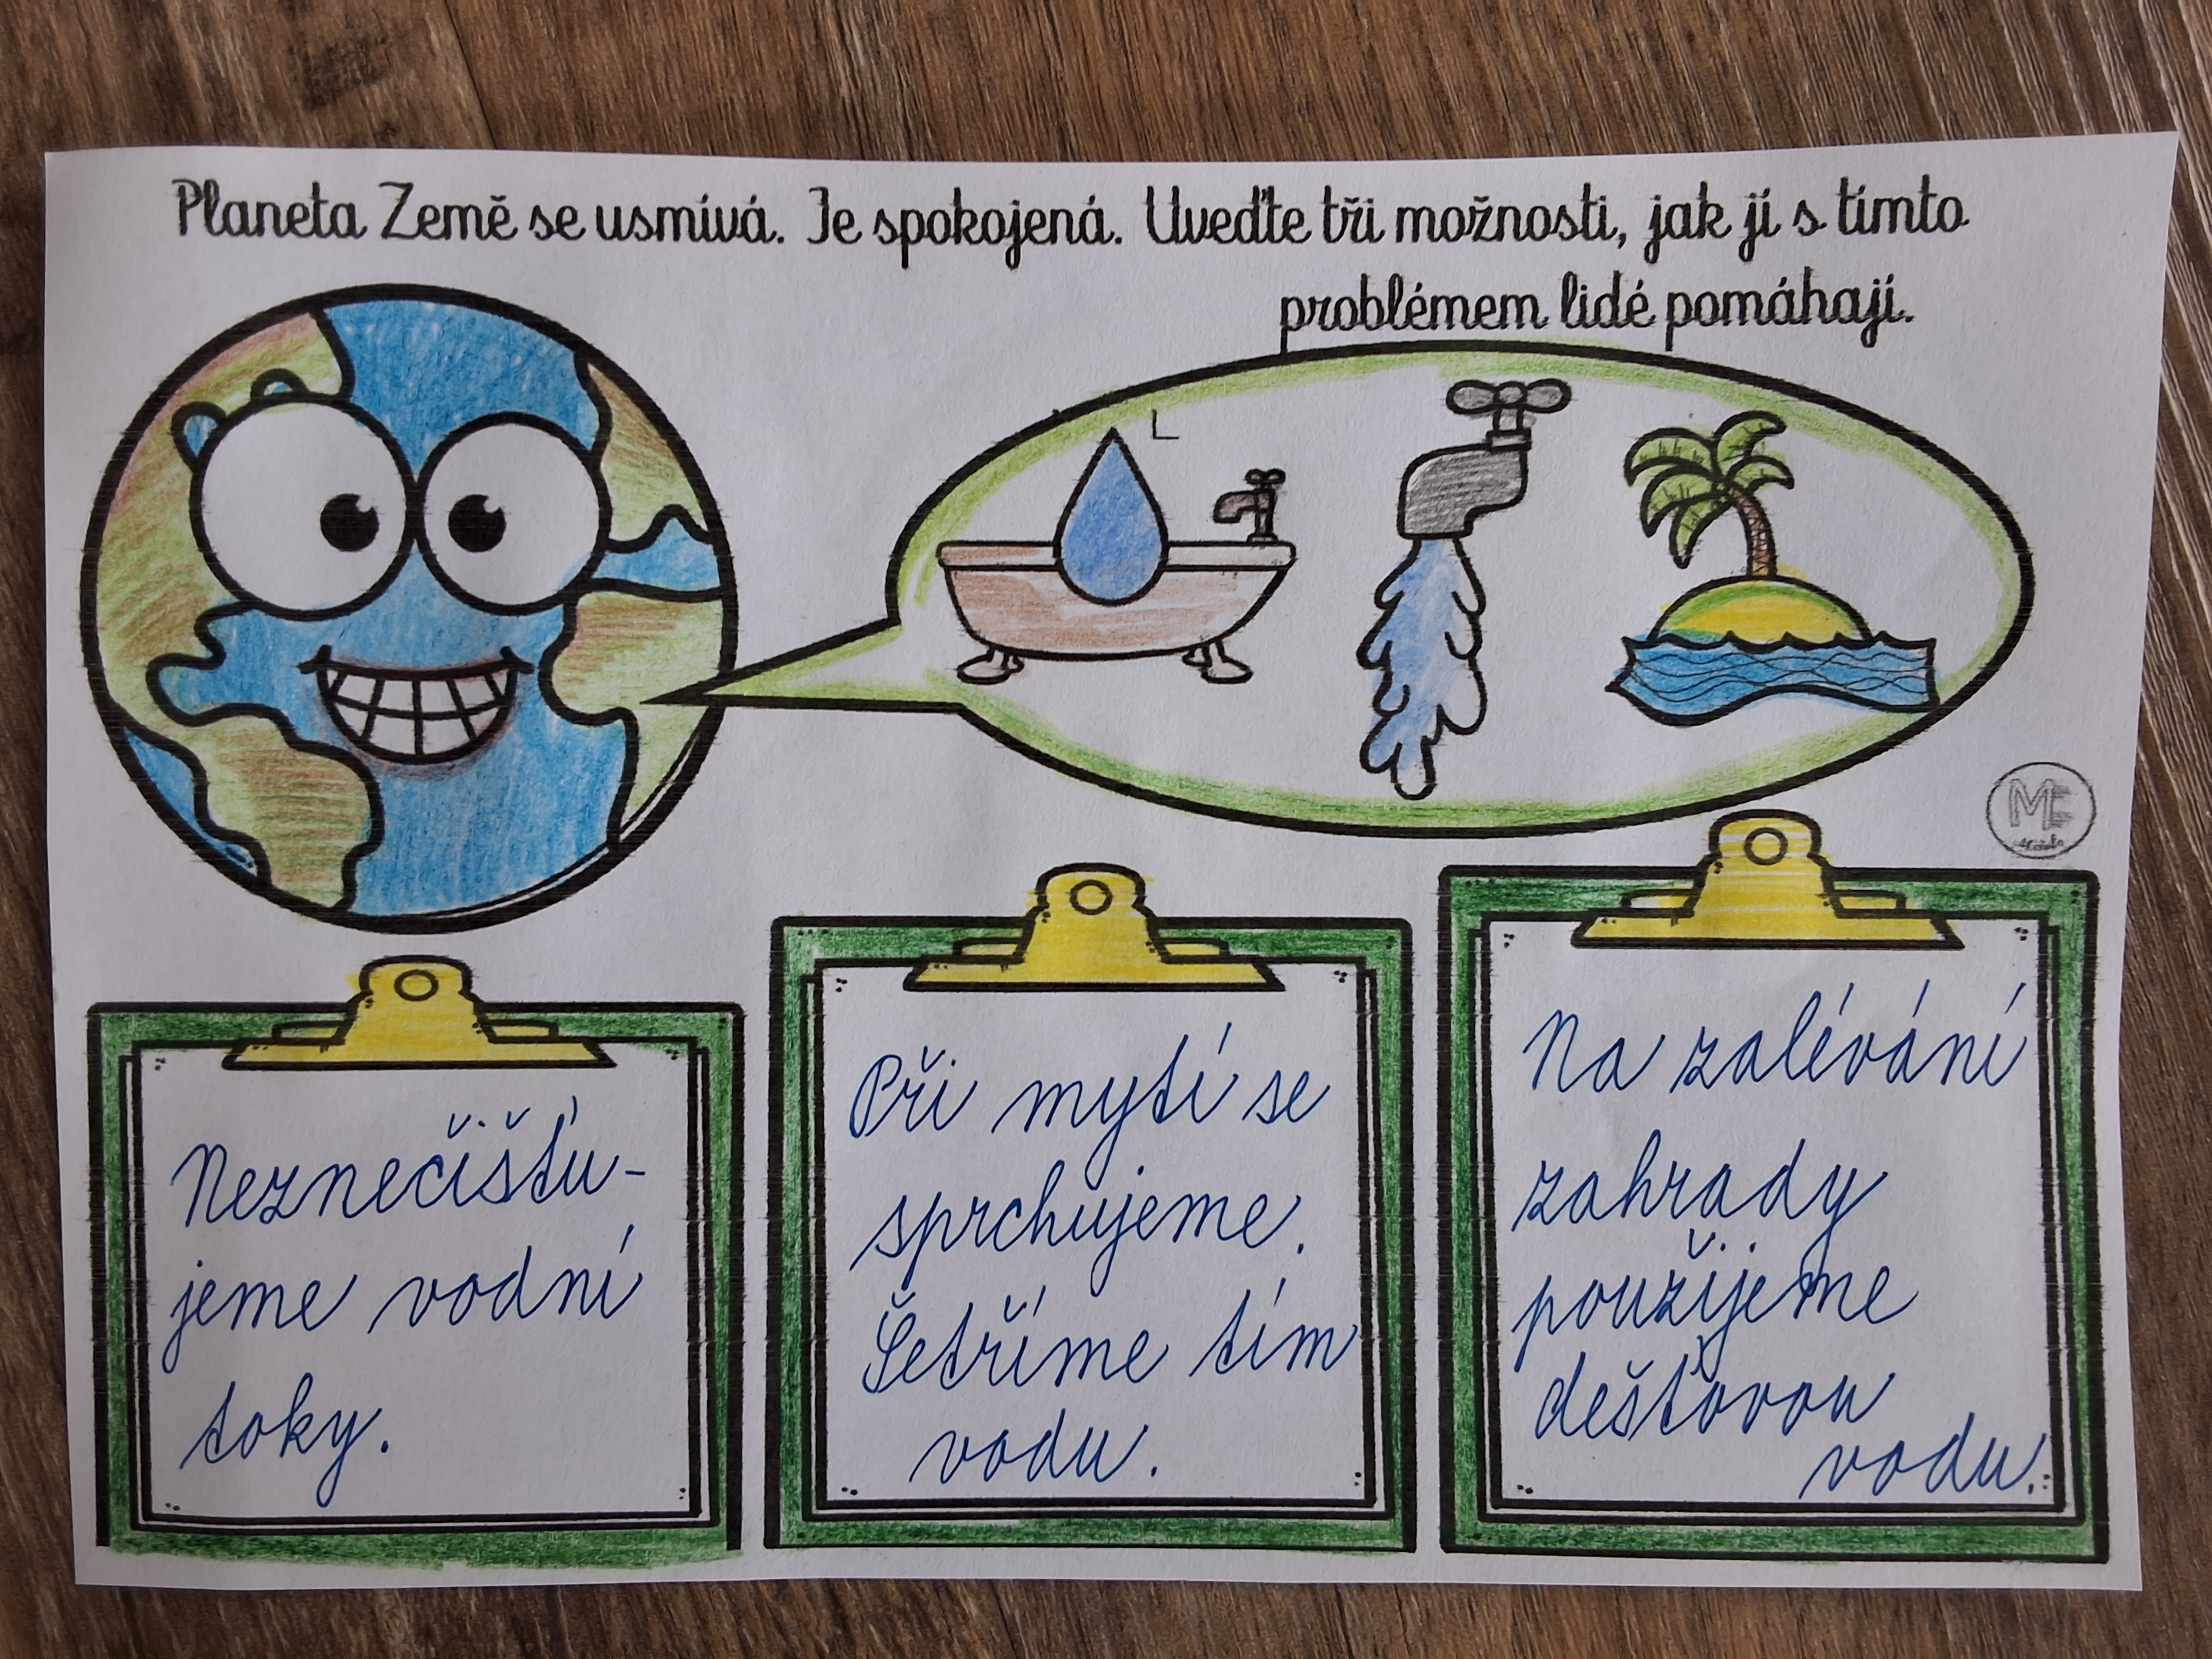 Planeta Země se usmívá. Je spokojená. Uveďte tři možnosti, jak jí s tímto
problémem lidé pomáhají.
L
ME
Neznečišťu-
jeme vodní
toky.
Při mytí se
sprchujeme.
Šetříme tím
vodu.
Na zalévání
zahrady
použijeme
dešťovou
vodu.